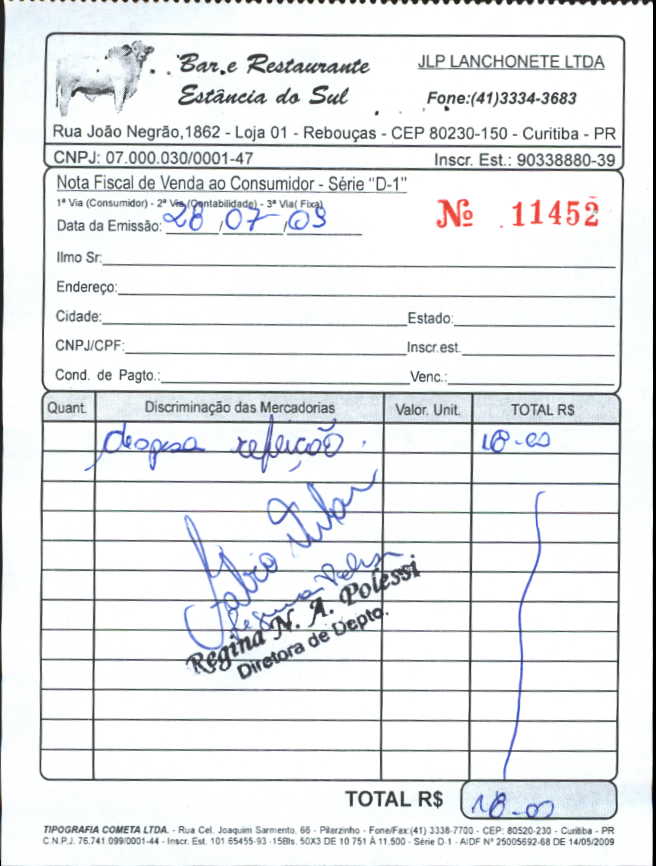 Bar e Restaurante
Estância do Sul
JLP LANCHONETE LTDA
Fone:(41)3334-3683
Rua João Negrão,1862 - Loja 01 - Rebouças - CEP 80230-150 - Curitiba - PR
CNPJ: 07.000.030/0001-47 Inscr. Est.: 90338880-39
Nota Fiscal de Venda ao Consumidor - Série "D-1"
1ª Via (Consumidor) - 2ª Via (Contabilidade) - 3ª Via( Fixa)
Nº 11452
Data da Emissão: 28 / 07 / 09
Ilmo Sr:
Endereço:
Cidade: Estado:
CNPJ/CPF: Inscr.est.
Cond. de Pagto.: Venc.:
Quant. Discriminação das Mercadorias Valor. Unit. TOTAL R$
despesa refeição. 18-00
Fabio
Regina N. A. Polessi
Diretora de Depto.
TOTAL R$ 18-00
TIPOGRAFIA COMETA LTDA. - Rua Cel. Joaquim Sarmento, 66 - Pilarzinho - Fone/Fax:(41) 3338-7700 - CEP: 80520-230 - Curitiba - PR
C.N.P.J. 76.741.099/0001-44 - Inscr. Est. 101 65455-93 -15Bls. 50X3 DE 10 751 À 11.500 - Série D-1 - AIDF Nº 25005692-68 DE 14/05/2009